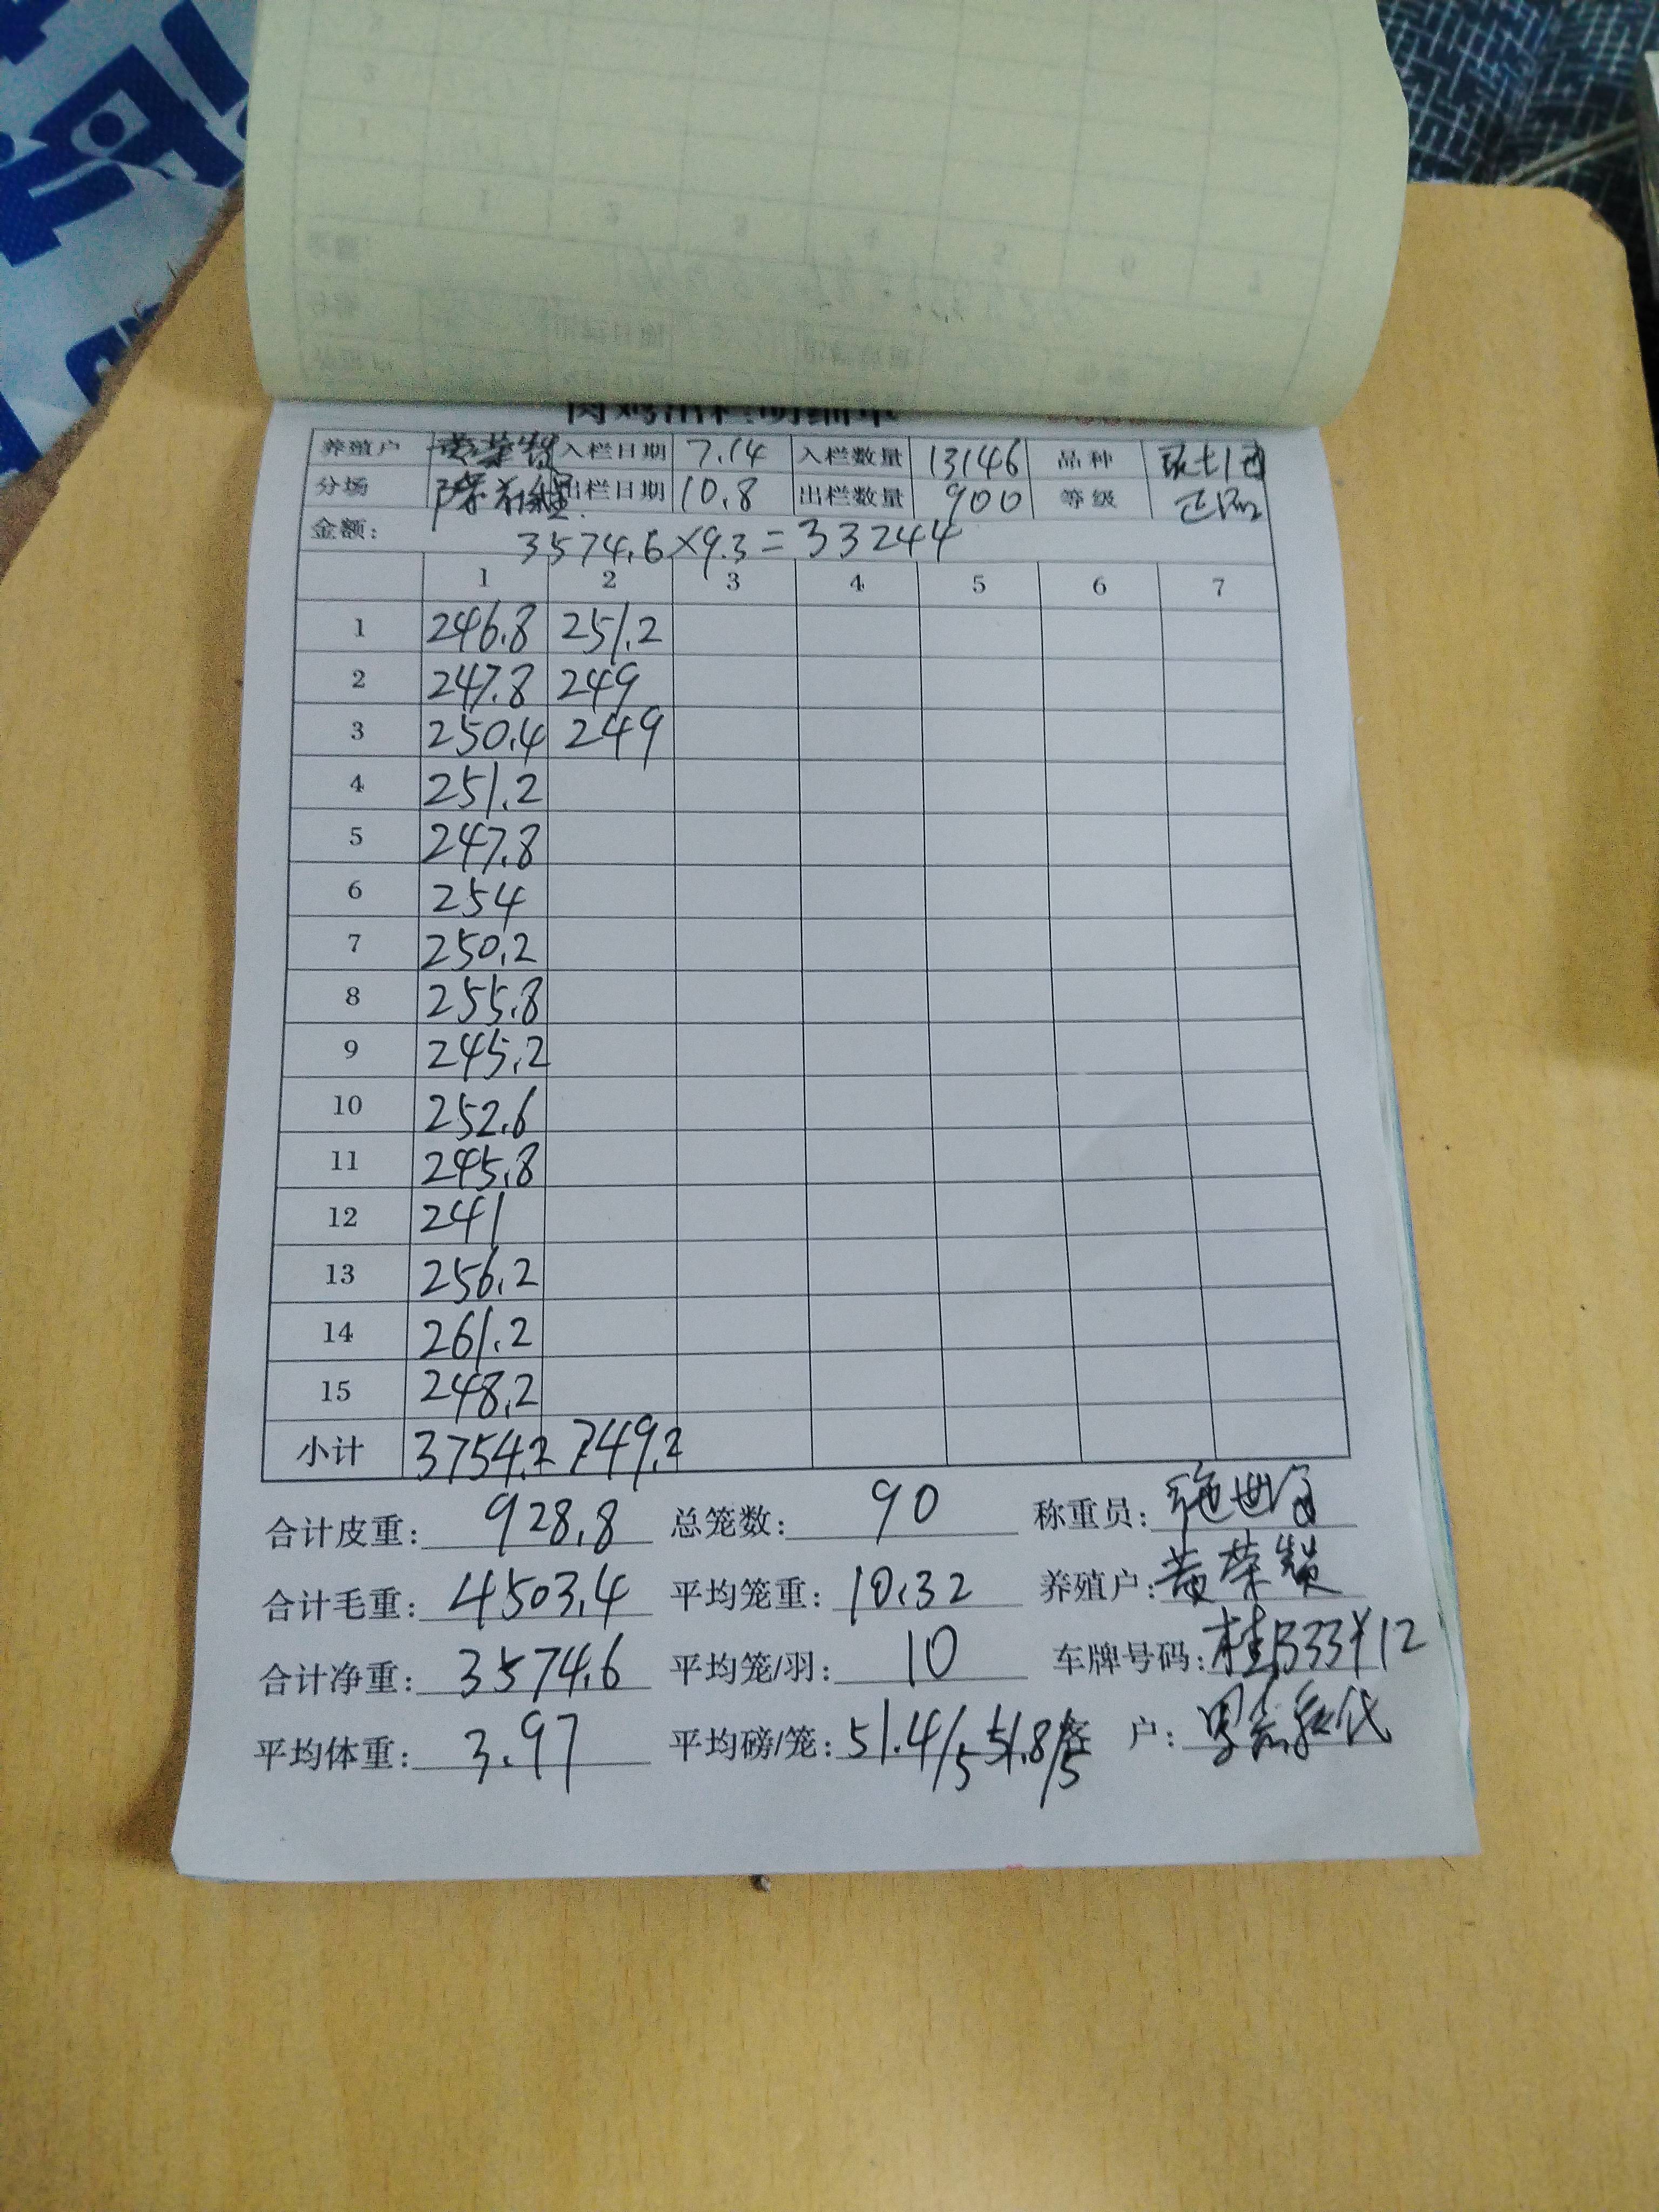 养殖户 黄荣赞 入栏日期 7.14 入栏数量 13146 品种
分场 出栏日期 10.8 出栏数量 900 等级 正品
金额: 3574.6×9.3=33244
1 2 3 4 5 6 7
1 246.8 251.2
2 247.8 249
3 250.4 249
4 251.2
5 247.8
6 254
7 250.2
8 255.8
9 245.2
10 252.6
11 245.8
12 241
13 256.2
14 261.2
15 248.2
小计 3754.2 749.2
合计皮重: 928.8 总笼数: 90 称重员:
合计毛重: 4503.4 平均笼重: 10.32 养殖户: 黄荣赞
合计净重: 3574.6 平均笼/羽: 10 车牌号码: 桂B33Y12
平均体重: 3.97 平均磅/笼: 51.4/5 51.8/5 客 户: